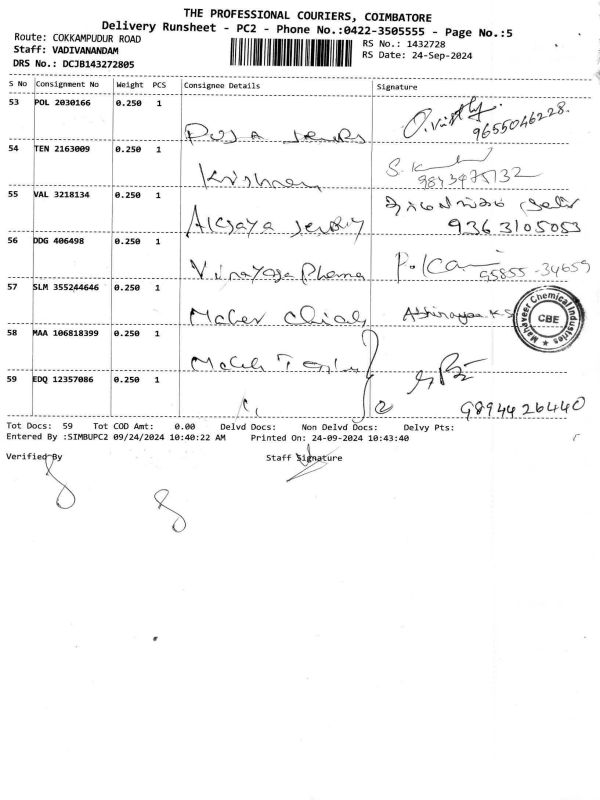 THE PROFESSIONAL COURIERS, COIMBATORE
Delivery Runsheet - PC2 - Phone No.:0422-3505555 - Page No.:5
Route: COKKAMPUDUR ROAD
RS No.: 1432728
Staff: VADIVANANDAM
RS Date: 24-Sep-2024
DRS No.: DCJB143272805
S No Consignment No Weight PCS Consignee Details Signature
53 POL 2030166 0.250 1
9655046228.
54 TEN 2163009 0.250 1
Krishnan
55 VAL 3218134 0.250 1
9363105053
56 DDG 406498 0.250 1
Vinayaga Pharma
95855-34659
57 SLM 355244646 0.250 1
Mahaveer Chemical Industries
CBE
58 MAA 106818399 0.250 1
59 EDQ 12357086 0.250 1
9894426440
Tot Docs: 59 Tot COD Amt: 0.00 Delvd Docs: Non Delvd Docs: Delvy Pts:
Entered By :SIMBUPC2 09/24/2024 10:40:22 AM Printed On: 24-09-2024 10:43:40
Verified By Staff Signature